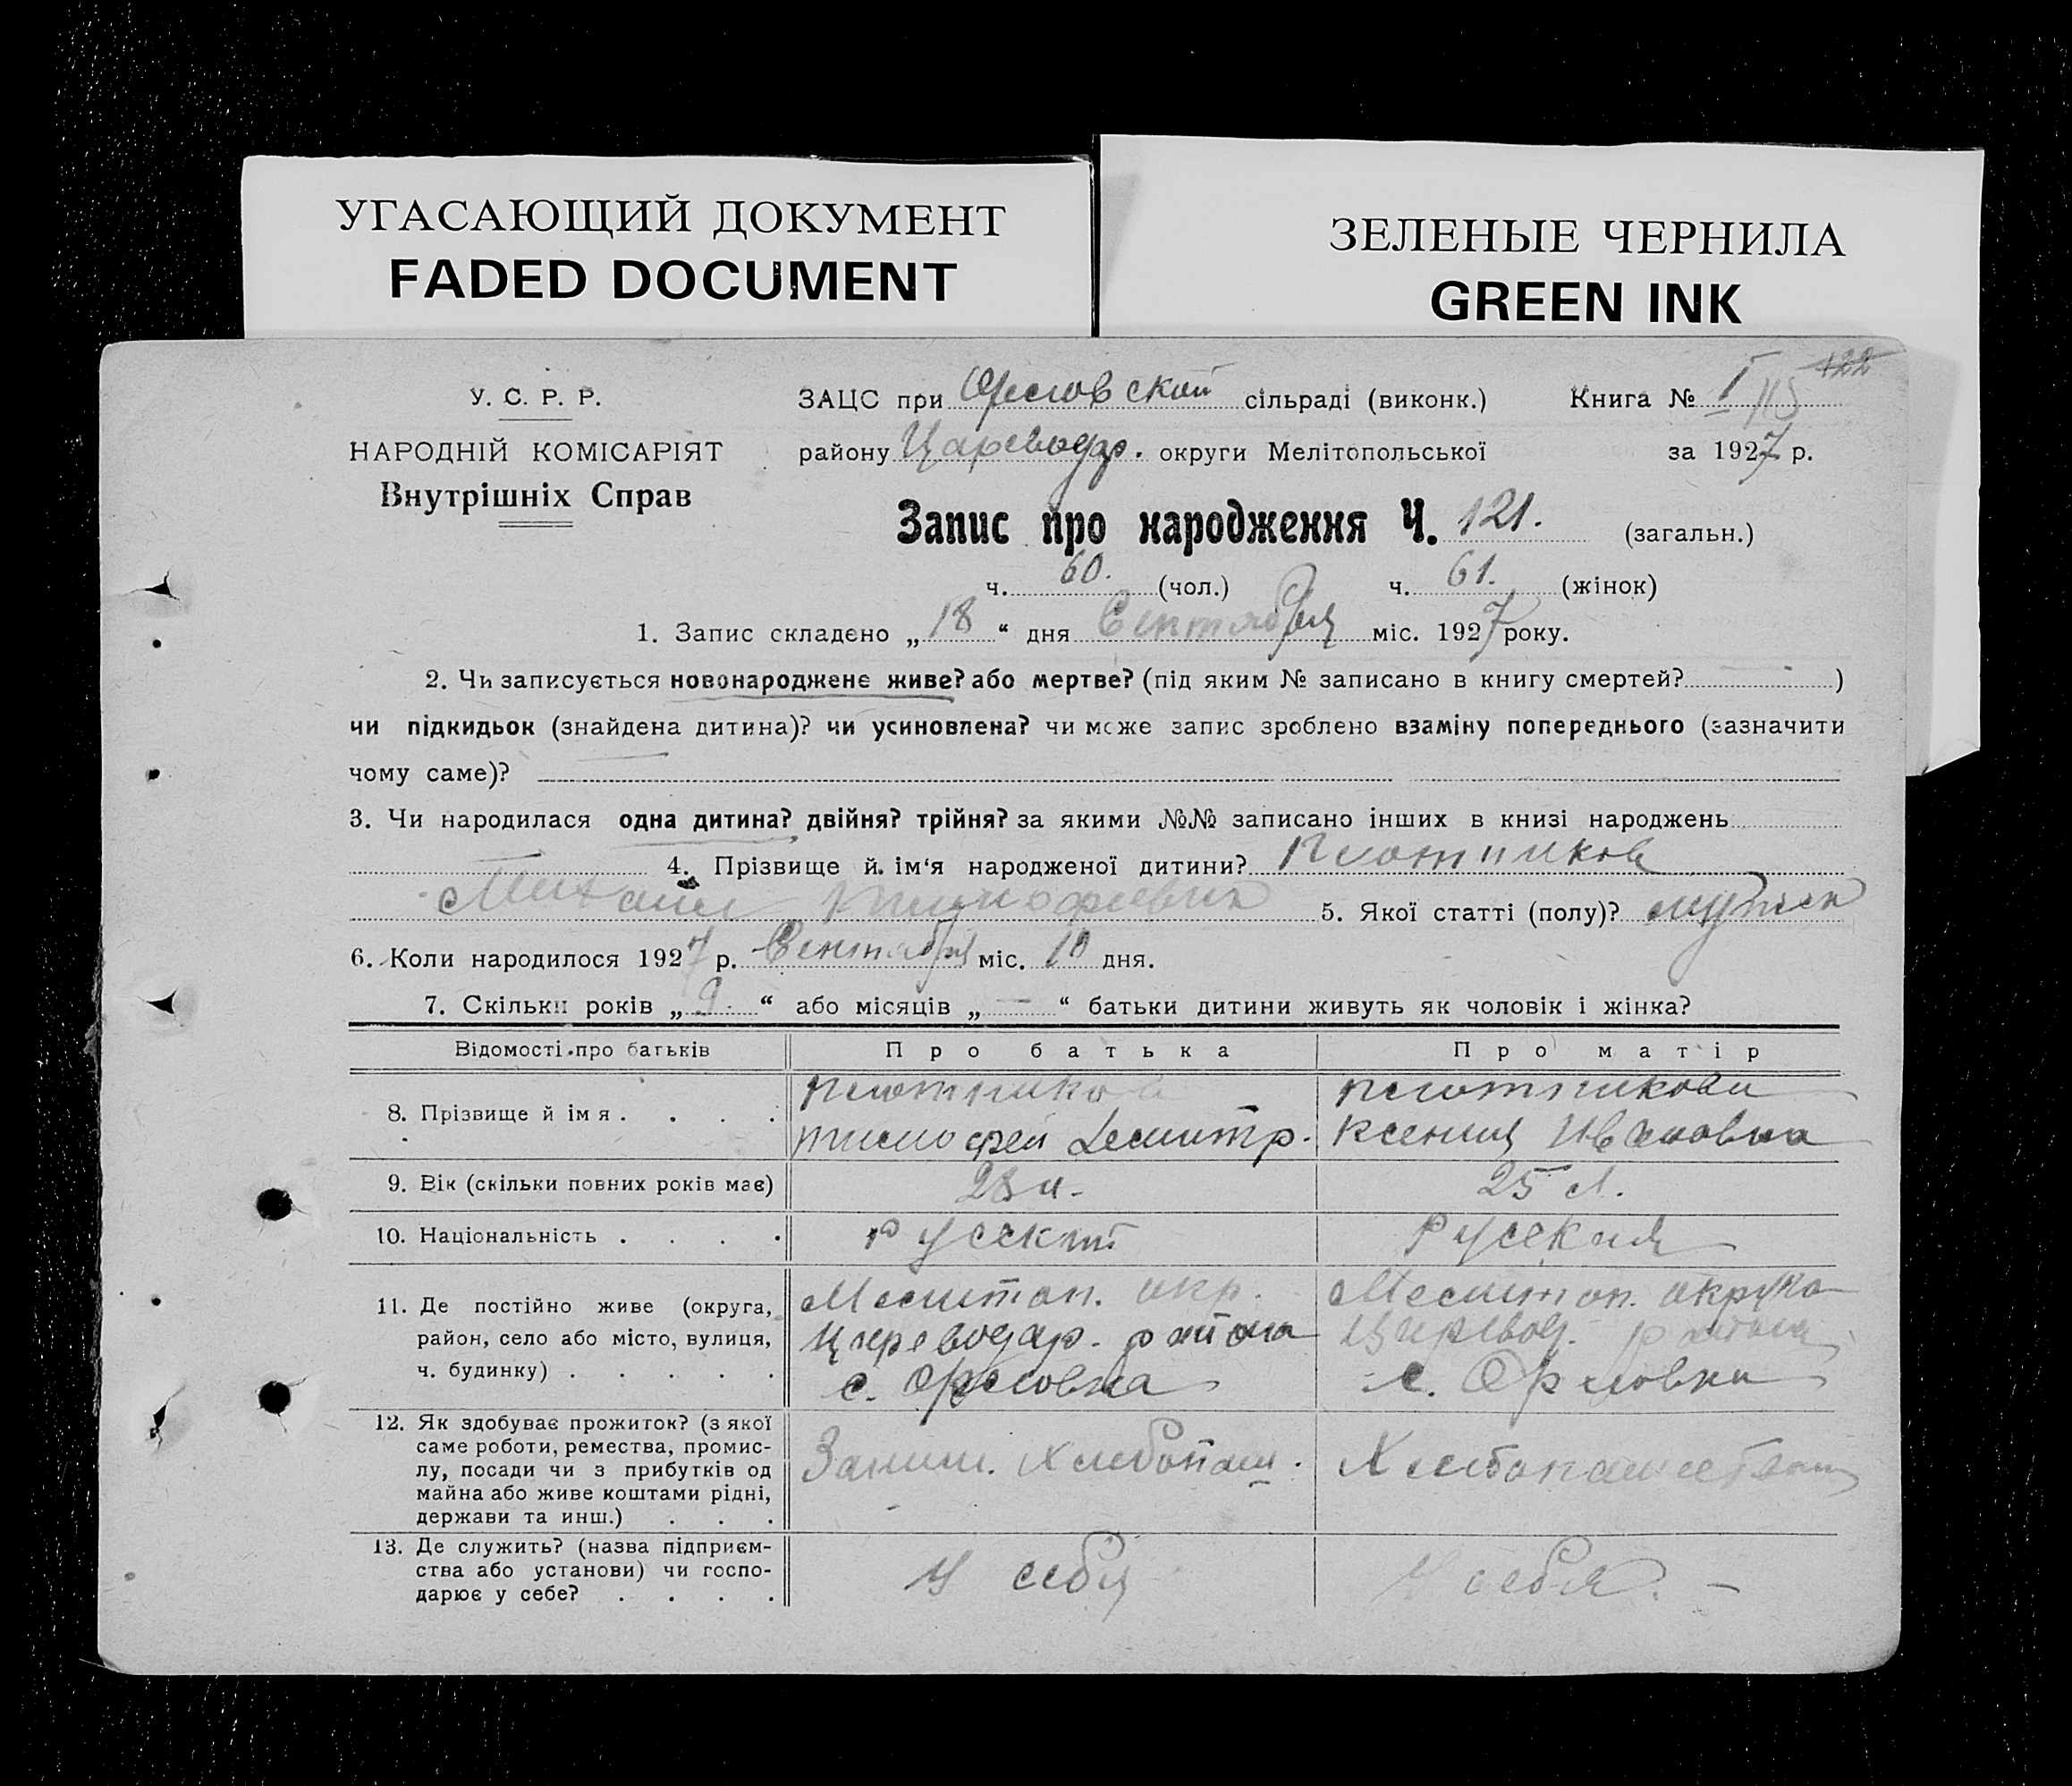 УГАСАЮЩИЙ ДОКУМЕНТ
FADED DOCUMENT
ЗЕЛЕНЫЕ ЧЕРНИЛА
GREEN INK
У. С. Р. Р.
НАРОДНІЙ КОМІСАРІЯТ
Внутрішніх Справ
ЗАЦС при Орловской сільраді (виконк.) Книга № I 115 122
району Цареводар. округи Мелітопольської за 1927 р.
Запис про народження Ч. 121. (загальн.)
ч. 60. (чол.) ч. 61. (жінок)
1. Запис складено „18“ дня Сентября міс. 1927 року.
2. Чи записується новонароджене живе? або мертве? (під яким № записано в книгу смертей? — )
чи підкидьок (знайдена дитина)? чи усиновлена? чи може запис зроблено взаміну попереднього (зазначити
чому саме)?
3. Чи народилася одна дитина? двійня? трійня? за якими №№ записано інших в книзі народжень
4. Прізвище й ім‘я народженої дитини? Плотников
Михаил Тимофеевич 5. Якої статті (полу)? мужск
6. Коли народилося 1927 р. Сентября міс. 18 дня.
7. Скільки років „9.“ або місяців „—“ батьки дитини живуть як чоловік і жінка?
Відомості про батьків Про батька Про матір
8. Прізвище й імя . . . . Плотников Плотникова
Тимофей Демитр. Ксения Ивановна
9. Вік (скільки повних років має) 28 л. 25 л.
10. Національність . . . . Русский Русская
11. Де постійно живе (округа, Мелитоп. окр. Мелитоп. округа
район, село або місто, вулиця, Цареводар. района Царевод. района
ч. будинку) . . . . . с. Орловка с. Орловка
12. Як здобуває прожиток? (з якої
саме роботи, ремества, промис-
лу, посади чи з прибутків од Заним. Хлебопаш. Хлебопашеством
майна або живе коштами рідні,
держави та инш.) . . .
13. Де служить? (назва підприєм-
ства або установи) чи госпо- У себя У себя. —
дарює у себе? . . . .